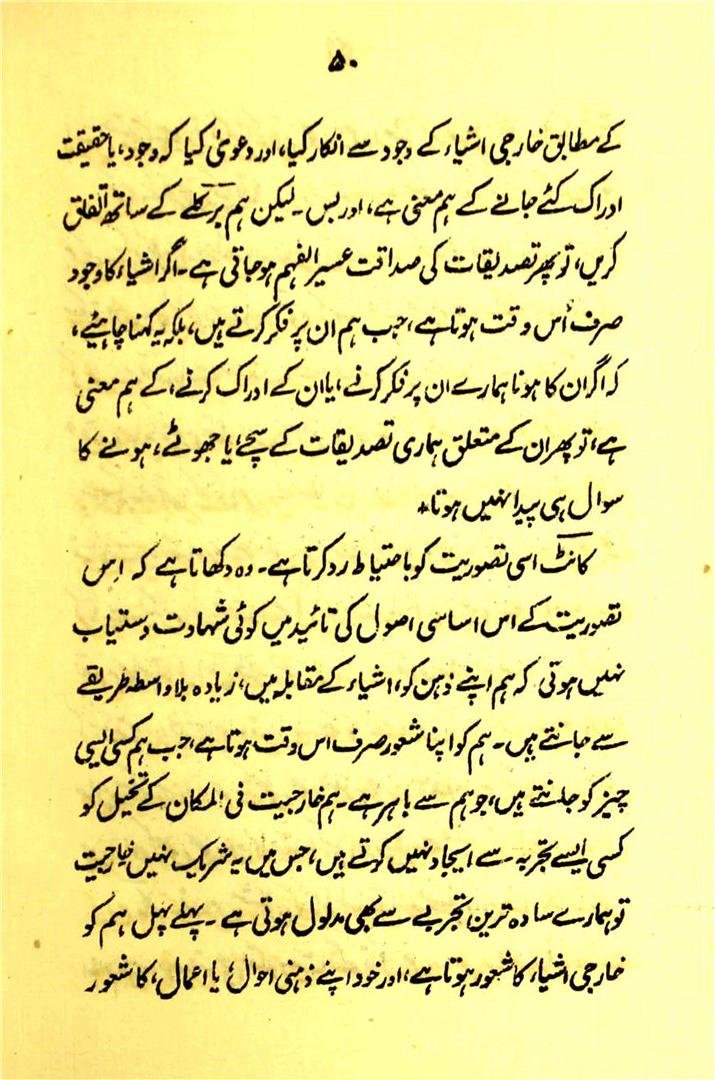 ۵۰
کے مطابق خارجی اشیاء کے وجود سے انکار کیا، اور دعویٰ کیا کہ وجود، یا حقیقت
ادراک کئے جانے کے ہم معنی ہے، اور بس۔ لیکن ہم برکلے کے ساتھ اتفاق
کریں، تو پھر تصدیقات کی صداقت عسیر الفہم ہو جاتی ہے۔ اگر اشیاء کا وجود
صرف اُس وقت ہوتا ہے، جب ہم ان پر فکر کرتے ہیں، بلکہ یہ کہنا چاہئیے،
کہ اگر ان کا ہونا ہمارے ان پر فکر کرنے، یا ان کے ادراک کرنے، کے ہم معنی
ہے، تو پھر ان کے متعلق ہماری تصدیقات کے سچے، یا جھوٹے، ہونے کا
سوال ہی پیدا نہیں ہوتا+
کانٹ اسی تصوریت کو باحتیاط رد کرتا ہے۔ وہ دکھاتا ہے کہ اِس
تصوریت کے اس اساسی اصول کی تائید میں کوئی شہادت دستیاب
نہیں ہوتی کہ ہم اپنے ذہن کو، اشیاء کے مقابلہ میں، زیادہ بلاواسطہ طریقے
سے جانتے ہیں۔ ہم کو اپنا شعور صرف اس وقت ہوتا ہے، جب ہم کسی ایسی
چیز کو جانتے ہیں، جو ہم سے باہر ہے۔ ہم خارجیت فی المکان کے تخیل کو
کسی ایسے تجربہ سے ایجاد نہیں کرتے ہیں، جس میں یہ شریک نہیں خارجیت
تو ہمارے سادہ ترین تجربے سے بھی مدلول ہوتی ہے۔ پہلے پہل ہم کو
خارجی اشیاء کا شعور ہوتا ہے، اور خود اپنے ذہنی احوال، یا اعمال، کا شعور